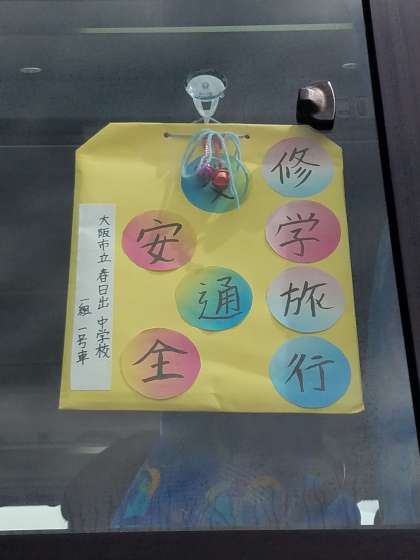 修学旅行
交通
安全
大阪市立 春日出 中学校
一組 一号車